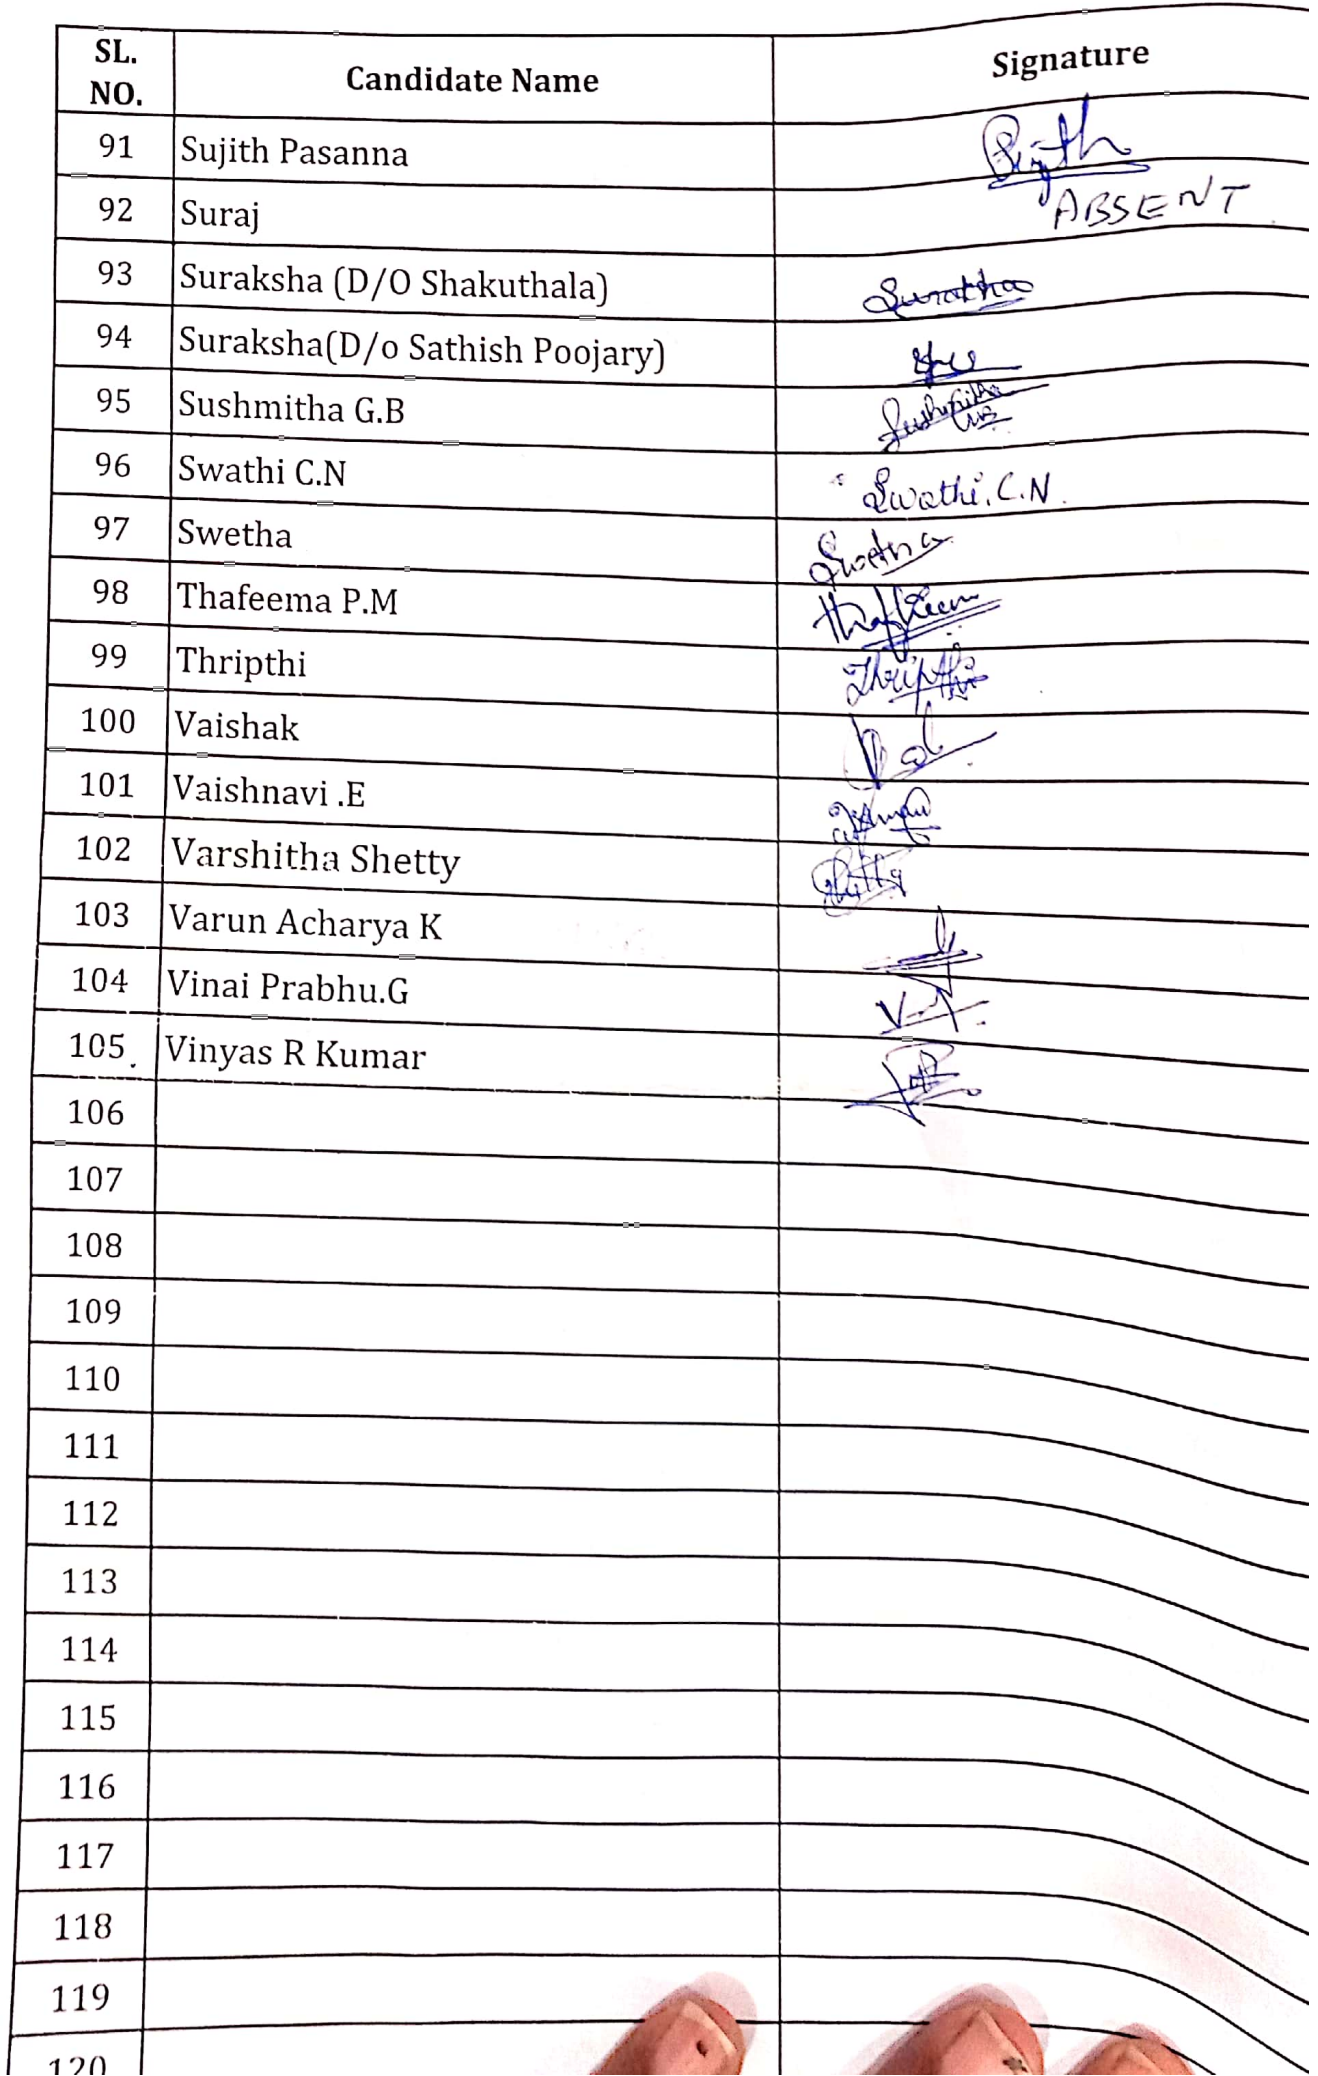 SL. NO. Candidate Name Signature
91 Sujith Pasanna Sujith
92 Suraj ABSENT
93 Suraksha (D/O Shakuthala) Suraksha
94 Suraksha(D/o Sathish Poojary)
95 Sushmitha G.B Sushmitha
96 Swathi C.N Swathi.C.N.
97 Swetha Swetha
98 Thafeema P.M
99 Thripthi Thripthi
100 Vaishak
101 Vaishnavi .E
102 Varshitha Shetty
103 Varun Acharya K
104 Vinai Prabhu.G
105 Vinyas R Kumar
106
107
108
109
110
111
112
113
114
115
116
117
118
119
120